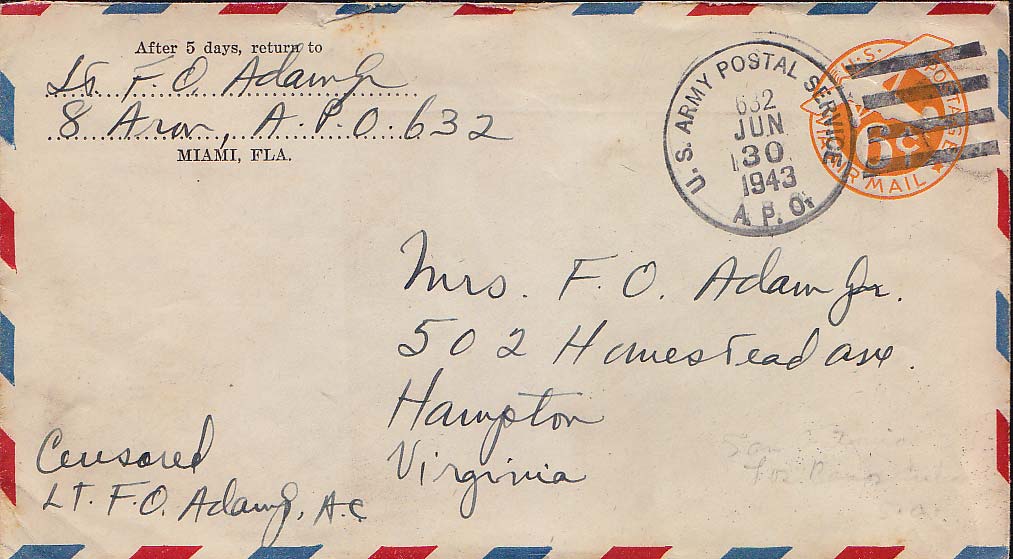 After 5 days, return to
Lt. F. O. Adam Jr
8 Aron, A.P.O. 632
MIAMI, FLA.
U.S. ARMY POSTAL SERVICE
632
JUN
30
1943
A.P.O.
U.S. POSTAGE
VIA AIR MAIL
6c
Mrs. F. O. Adam Jr.
502 Homestead ave.
Hampton
Virginia
Censored
LT. F. O. Adam Jr, A.C.